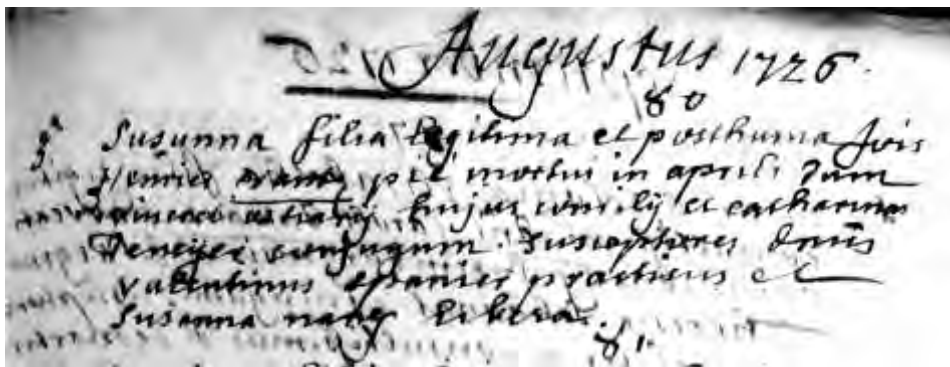 Augustus 1726.
80
Susanna filia legitima et posthuma Jois
Henrici pie mortui in aprili dum
hujus consilij et catharina
conjugum. susceptores dnus
valentinus practicus et
Susanna libera.
81.